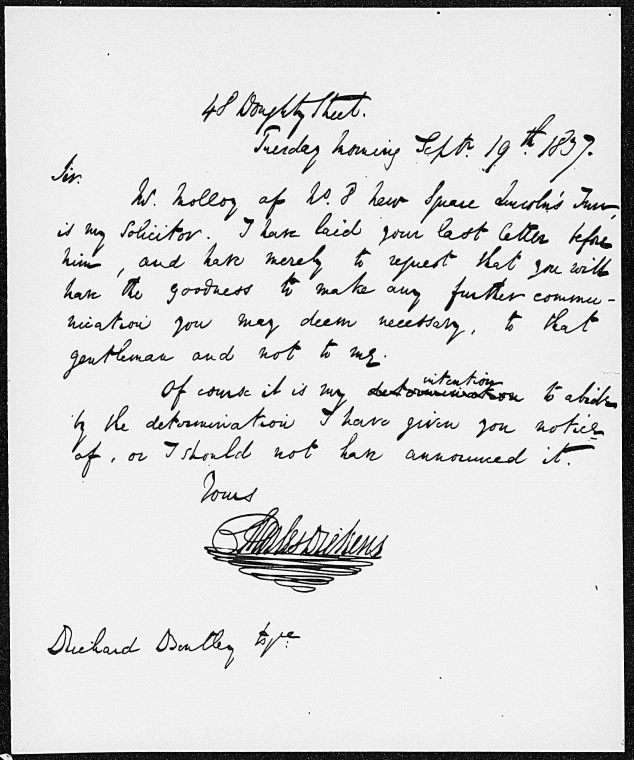 48 Doughty Street.
Tuesday Morning Septr. 19th. 1837.
Sir.
Mr. Molloy of No. 8 New Square Lincoln's Inn,
is my Solicitor. I have laid your last letter before
him, and have merely to request that you will
have the goodness to make any further commu-
nication you may deem necessary, to that
gentleman and not to me.
intention
Of course it is my determination to abide
by the determination I have given you notice
of, or I should not have announced it.
Yours
Charles Dickens
Richard Bentley Esqre.